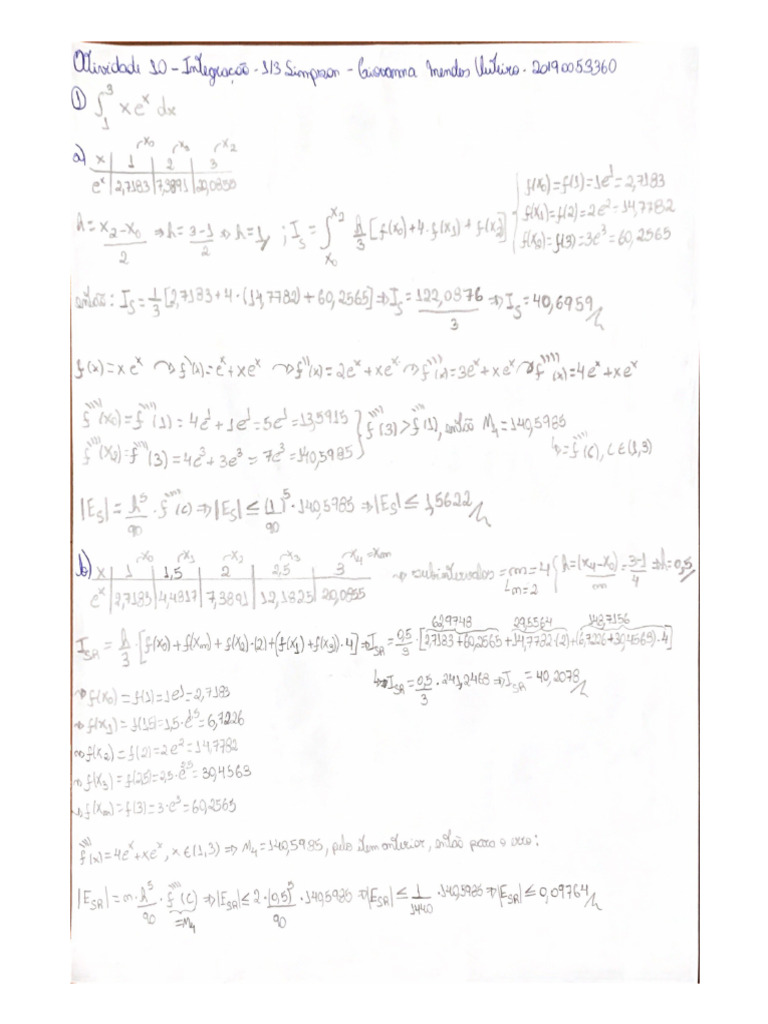 Atividade 10 - Integração - 1/3 Simpson - Giovanna Mendes - 20190053360
① ∫₁³ x eˣ dx
a) x | 1 (x₀) | 2 (x₁) | 3 (x₂)
eˣ | 2,7183 | 7,3891 | 20,0855
h = (x₂ - x₀)/2 ⇒ h = (3-1)/2 ⇒ h = 1 ; I_S = ∫_{x₀}^{x₂} h/3 [f(x₀) + 4.f(x₁) + f(x₂)]
f(x₀) = f(1) = 1e¹ = 2,7183
f(x₁) = f(2) = 2e² = 14,7782
f(x₂) = f(3) = 3e³ = 60,2565
então: I_S = 1/3 [2,7183 + 4·(14,7782) + 60,2565] ⇒ I_S = 122,0876/3 ⇒ I_S = 40,6959
f(x) = x eˣ → f'(x) = eˣ + xeˣ → f''(x) = 2eˣ + xeˣ → f'''(x) = 3eˣ + xeˣ → f''''(x) = 4eˣ + xeˣ
f''''(x₀) = f''''(1) = 4e¹ + 1e¹ = 5e¹ = 13,5915
f''''(x₂) = f''''(3) = 4e³ + 3e³ = 7e³ = 140,5985
f''''(3) > f''''(1), então M₄ = 140,5985
↳ = f''''(c), c ∈ (1,3)
|E_S| = h⁵/90 · f''''(c) ⇒ |E_S| ≤ (1)⁵/90 · 140,5985 ⇒ |E_S| ≤ 1,5622
b) x | 1 (x₀) | 1,5 (x₁) | 2 (x₂) | 2,5 (x₃) | 3 (x₄ = xm)
eˣ | 2,7183 | 4,4817 | 7,3891 | 12,1825 | 20,0855
→ subintervalos = m = 4
↳ n = 2
h = (x₄ - x₀)/m = (3-1)/4 ⇒ h = 0,5
I_SR = h/3 · [f(x₀) + f(xm) + f(x₂)·(2) + (f(x₁) + f(x₃))·4] ⇒ I_SR = 0,5/3 · [2,7183 + 60,2565 + 14,7782·(2) + (6,7226 + 30,4563)·4]
62,9748 29,5564 148,7156
↳ I_SR = 0,5/3 · 241,2468 ⇒ I_SR = 40,2078
→ f(x₀) = f(1) = 1e¹ = 2,7183
→ f(x₁) = f(1,5) = 1,5·e^1,5 = 6,7226
→ f(x₂) = f(2) = 2e² = 14,7782
→ f(x₃) = f(2,5) = 2,5·e^2,5 = 30,4563
→ f(xm) = f(3) = 3·e³ = 60,2565
f''''(x) = 4eˣ + xeˣ, x ∈ (1,3) ⇒ M₄ = 140,5985, pelo item anterior, então para o erro:
|E_SR| = n · h⁵/90 · f''''(c) ⇒ |E_SR| ≤ 2·(0,5)⁵/90 · 140,5985 ⇒ |E_SR| ≤ 1/1440 · 140,5985 ⇒ |E_SR| ≤ 0,09764
= M₄